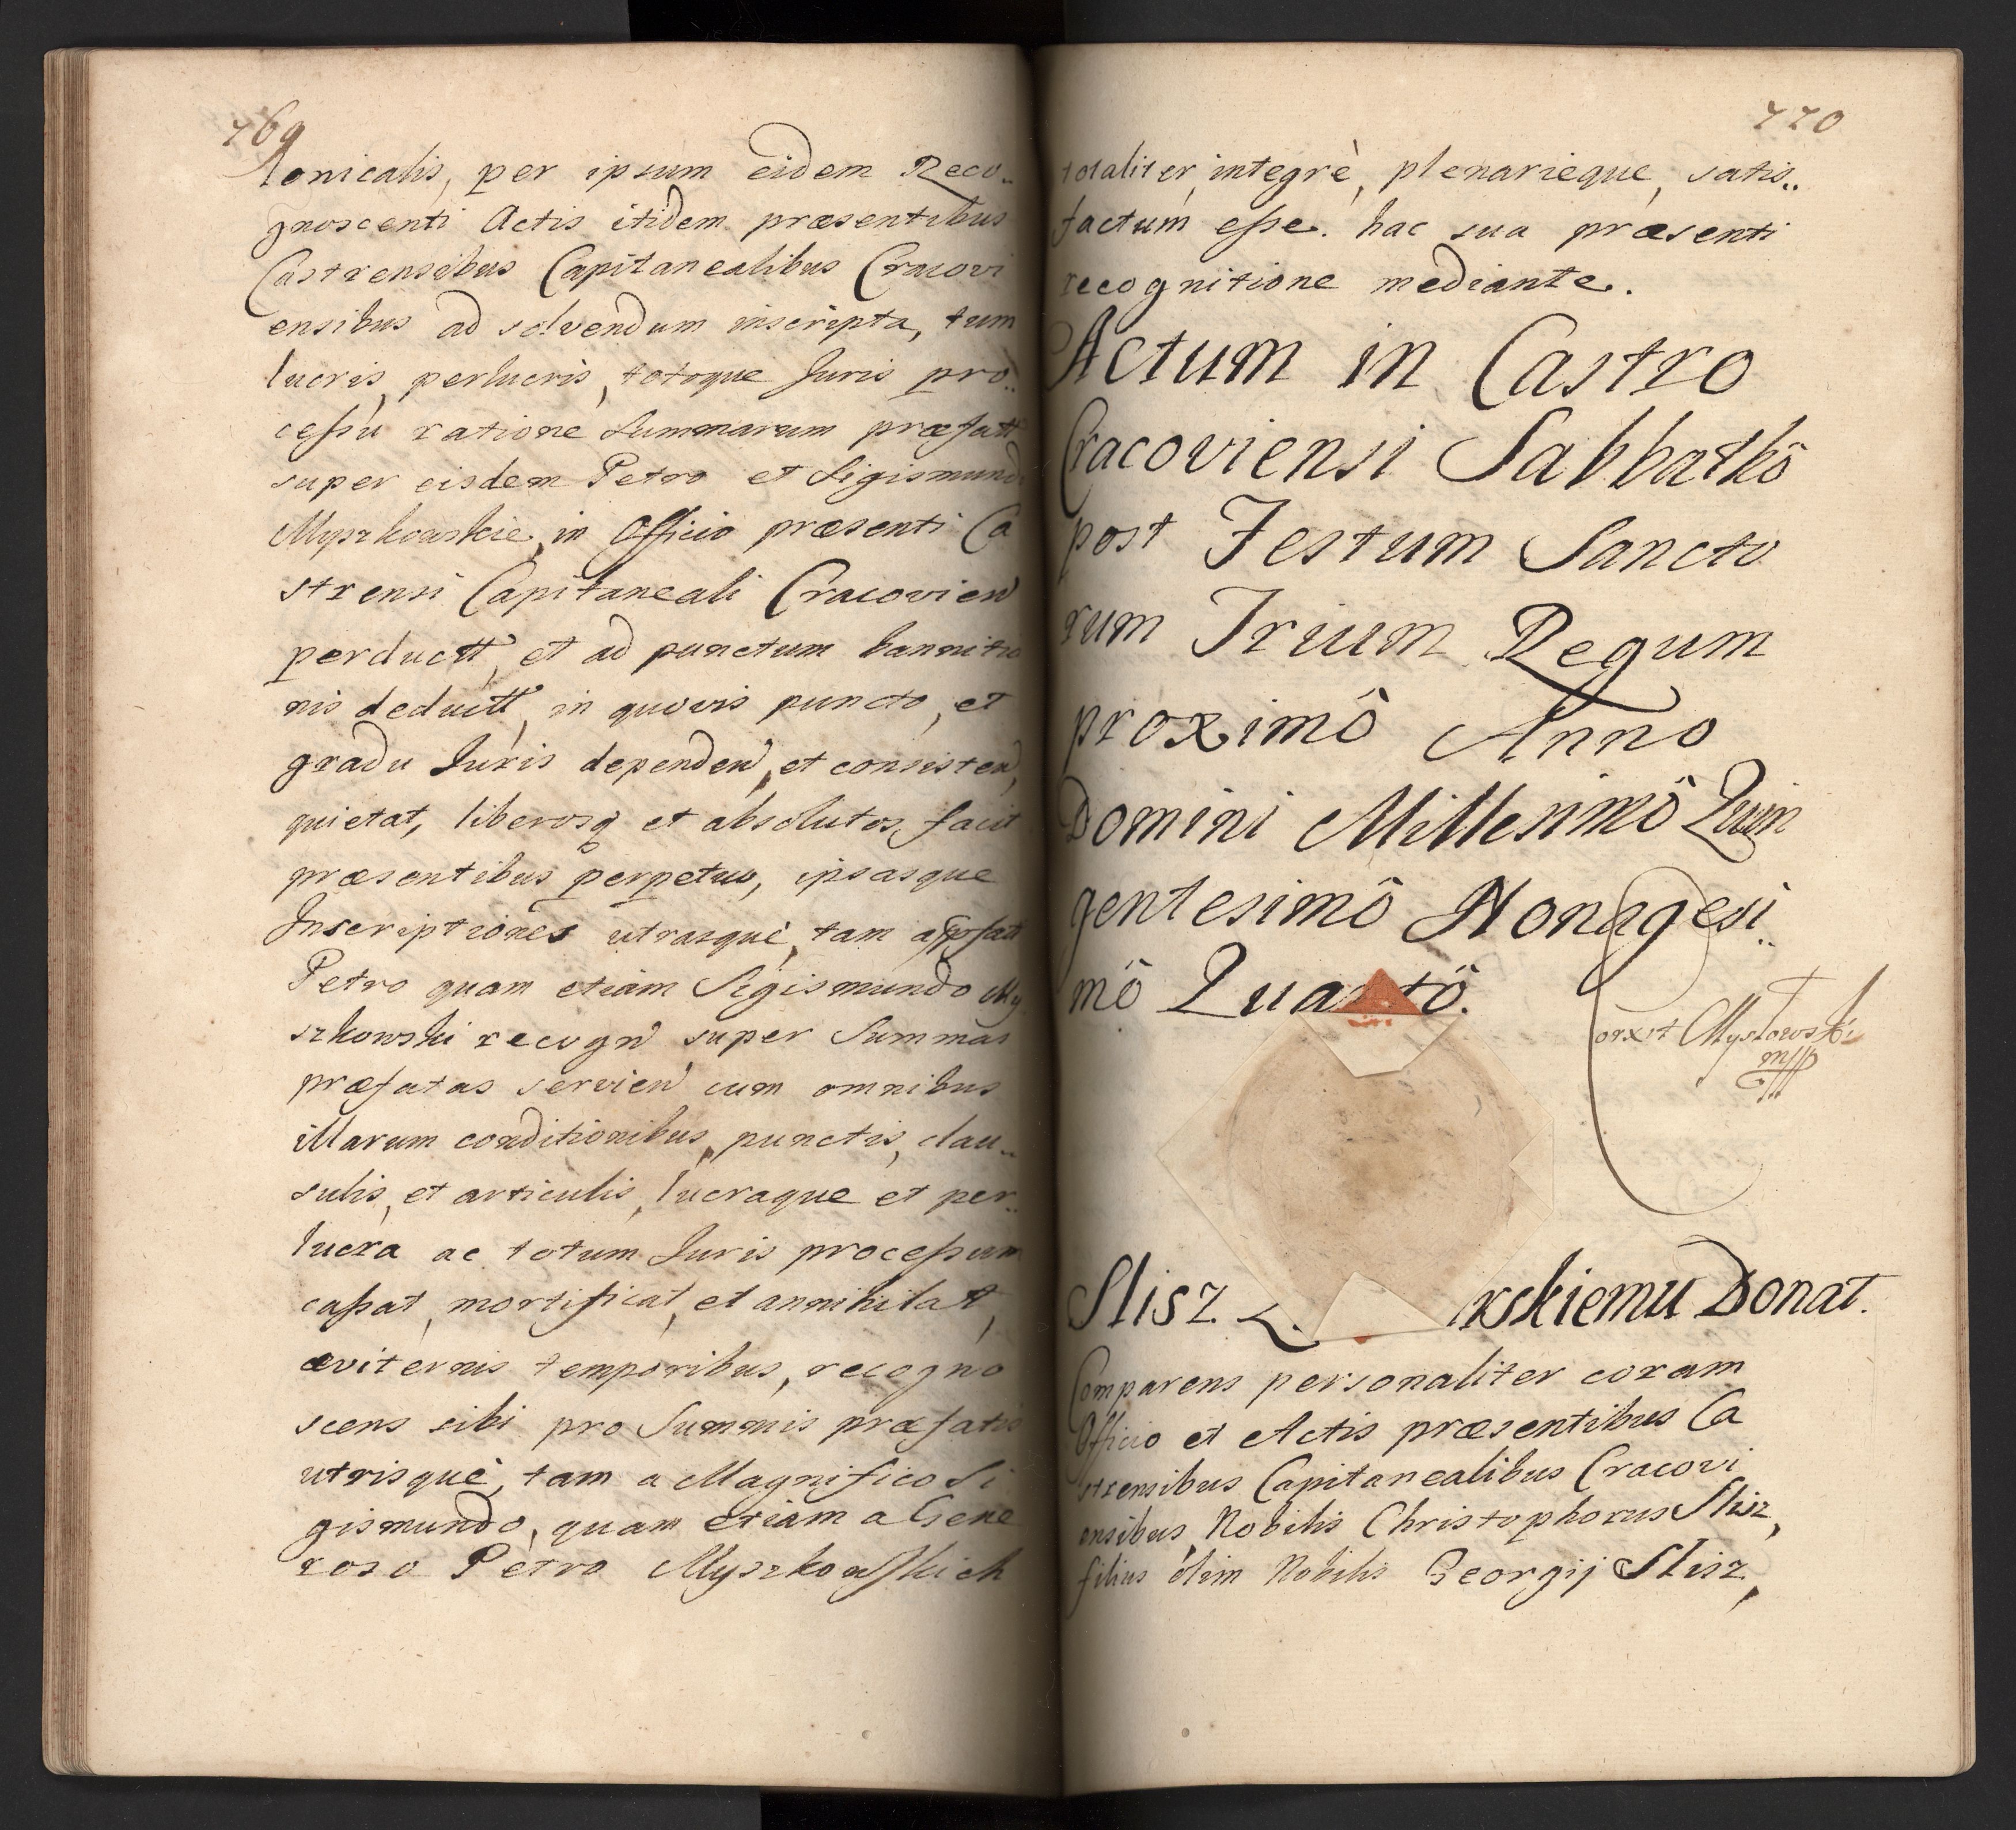 769
lonicalis, per ipsum eidem Reco„
gnoscenti Actis itidem præsentibus
Castrensibus Capitanealibus Cracovi
ensibus ad solvendum inscripta, tum
lucris, perlucris, totoque Juris pro„
cessu ratione Summarum præfatt
super eisdem Petro et Sigismundo
Myszkowskie in Officio præsenti Ca
strensi Capitaneali Cracovien
perductt, et ad punctum bannitio
nis deductt, in quovis puncto, et
gradu Juris dependen, et consisten,
quietat, liberosq et absolutos facit
præsentibus perpetuo, ipsasque
Inscriptiones utrasquè, tam a præfatt
Petro quam etiàm Sigismundo My
szkowski recogn super Summas
præfatas servien cum omnibus
illarum conditionibus, punctis, clau„
sulis, et articulis, lucraque et per„
lucra ac totum Juris processum
cassat, mortificat, et annihilat,
æviternis temporibus, recogno
scens sibi pro Summis præfatis
utrisquè, tam a Magnifico Si
gismundo, quam etiàm a Gene
roso Petro Myszkowskich
770
totaliter, integrè, plenarieque, satis„
factum esse. hac sua præsenti
recognitione mediante.
Actum in Castro
Cracoviensi Sabbathô
post Festum Sancto
rum Trium Regum
proximô Anno
Domini Millesimô Quin
gentesimô Nonagesi„
mô Quartô.
Corxit Mysłowski
mpp
Slisz rskiemu Donat.
Comparens personaliter coram
Officio et Actis præsentibus Ca
strensibus Capitanealibus Cracovi
ensibus, Nobilis Christophorus Slisz,
filius olim Nobilis Georgij Slisz,